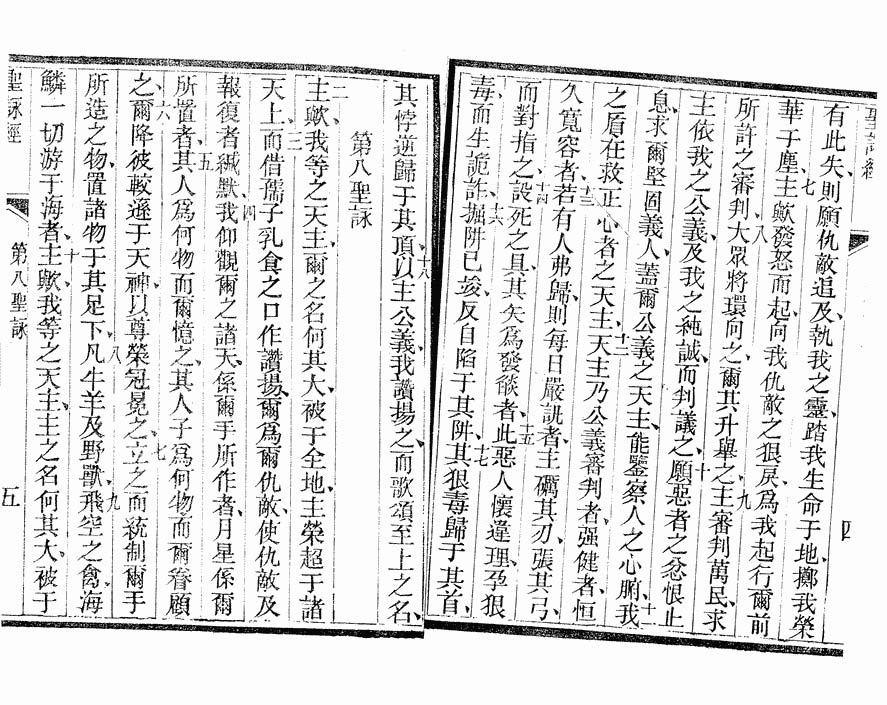 聖詠經
四
有此失、則願仇敵追及執我之靈、踏我生命于地、擲我榮
華于塵、七主歟發怒而起、向我仇敵之狠戾、爲我起行爾前
所許之審判、八大眾將環向之、爾其升舉之、九主審判萬民、求
主依我之公義、及我之純誠而判議之、十願惡者之忿恨止
息、求爾堅固義人、蓋爾公義之天主、能鑒察人之心腑、十一我
之盾在救正心者之天主、十二天主乃公義審判者、强健者、恒
久寬容者、十三若有人弗歸、則每日嚴訊者、主礪其刃、張其弓、
而對指之、十四設死之具、其矢爲發燄者、十五此惡人懷違理、孕狠
毒、而生詭詐、十六掘阱已竣、反自陷于其阱、十七其狠毒歸于其首、
其悖逆歸于其頂、十八以主公義、我讚揚之、而歌頌至上之名、
第八聖詠
二主歟、我等之天主、爾之名何其大、被于全地、主榮超于諸
天上、三而借孺子乳食之口、作讚揚、爾爲爾仇敵、使仇敵及
報復者緘默、四我仰觀爾之諸天、係爾手所作者、月星係爾
所置者、五其人爲何物、而爾憶之、其人子爲何物、而爾眷顧
之、六爾降彼較遜于天神、以尊榮冠冕之、七立之而統制爾手
所造之物、置諸物于其足下、八凡牛羊及野獸、飛空之禽、九海
鱗一切游于海者、十主歟、我等之天主、主之名何其大、被于
聖詠經
第八聖詠
五